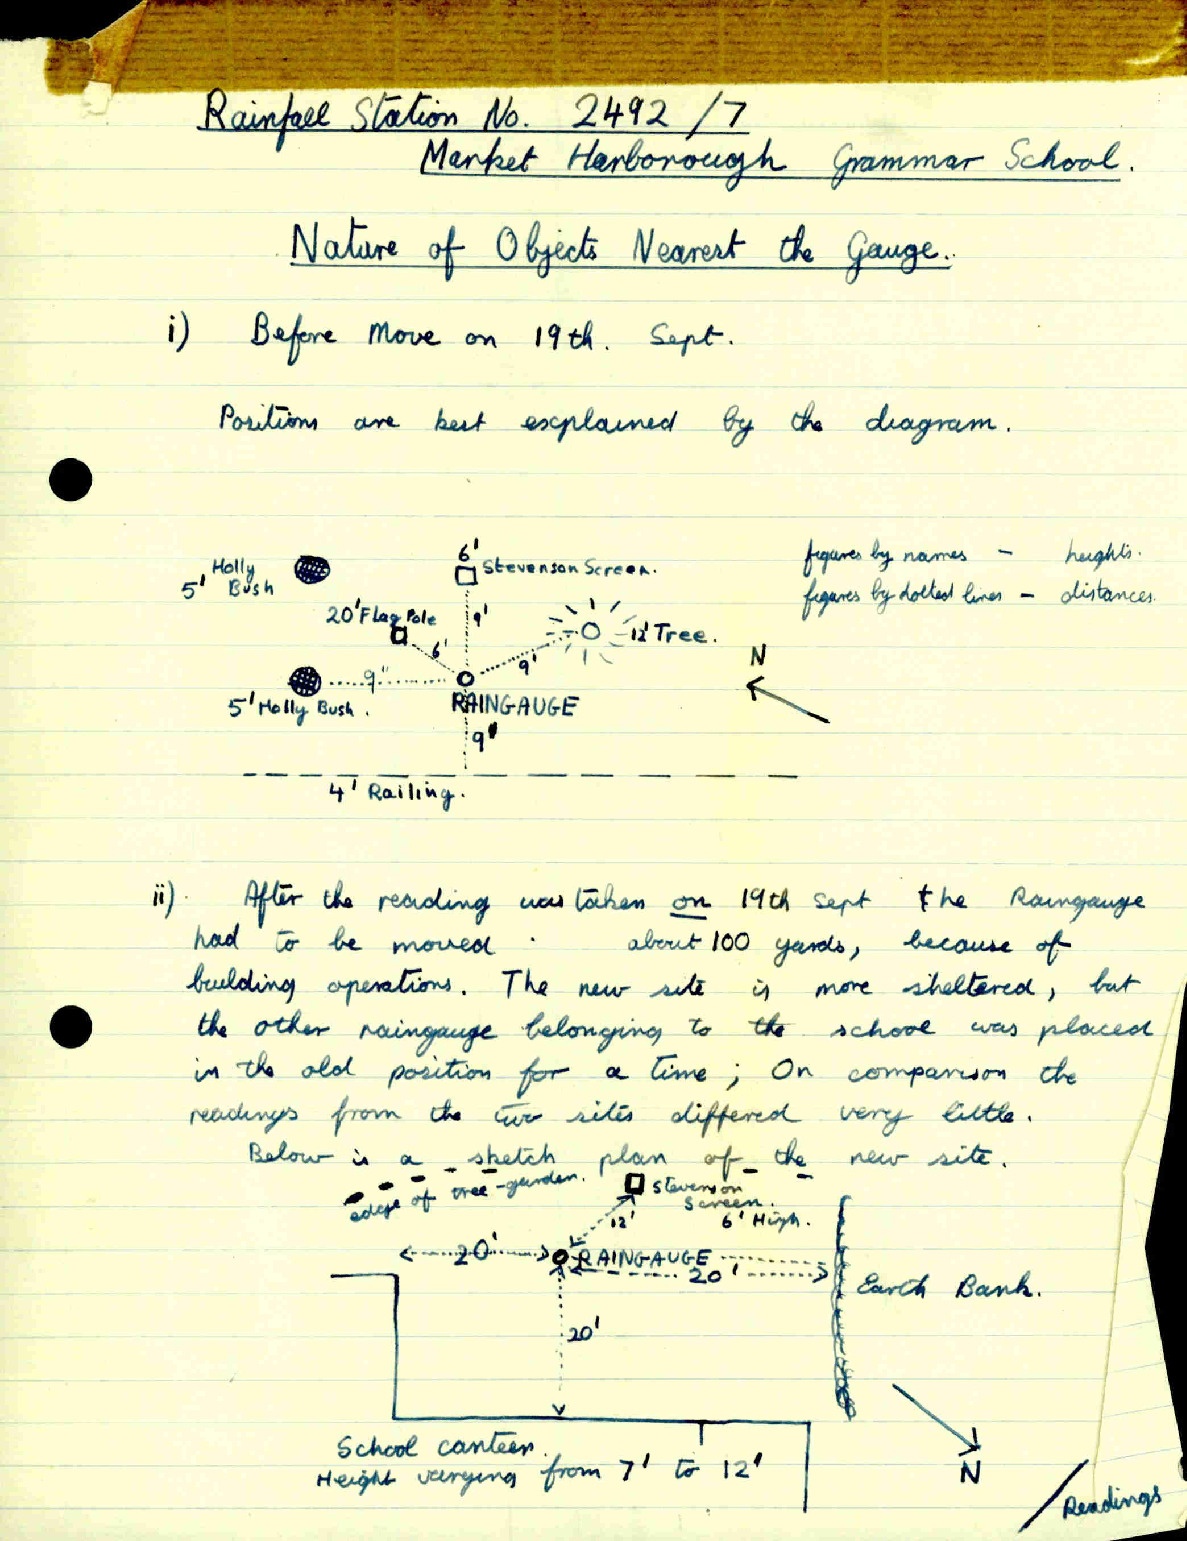 Rainfall Station No. 2492/7
Market Harborough Grammar School.
Nature of Objects Nearest the Gauge.
i) Before Move on 19th. Sept.
Positions are best explained by the diagram.
figures by names - heights.
figures by dotted lines - distances.
5' Holly Bush
6'
Stevenson Screen.
20' Flag Pole
9'
12' Tree.
6'
9'
N
9"
5' Holly Bush.
RAINGAUGE
9'
4' Railing.
ii) After the reading was taken on 19th Sept the Raingauge
had to be moved about 100 yards, because of
building operations. The new site is more sheltered, but
the other raingauge belonging to the school was placed
in the old position for a time; On comparison the
readings from the two sites differed very little.
Below is a sketch plan of the new site.
edge of tree-garden.
Stevenson
Screen.
6' High.
12'
20'
RAINGAUGE
20'
Earth Bank.
20'
School canteen.
Height varying from 7' to 12'
N
/Readings